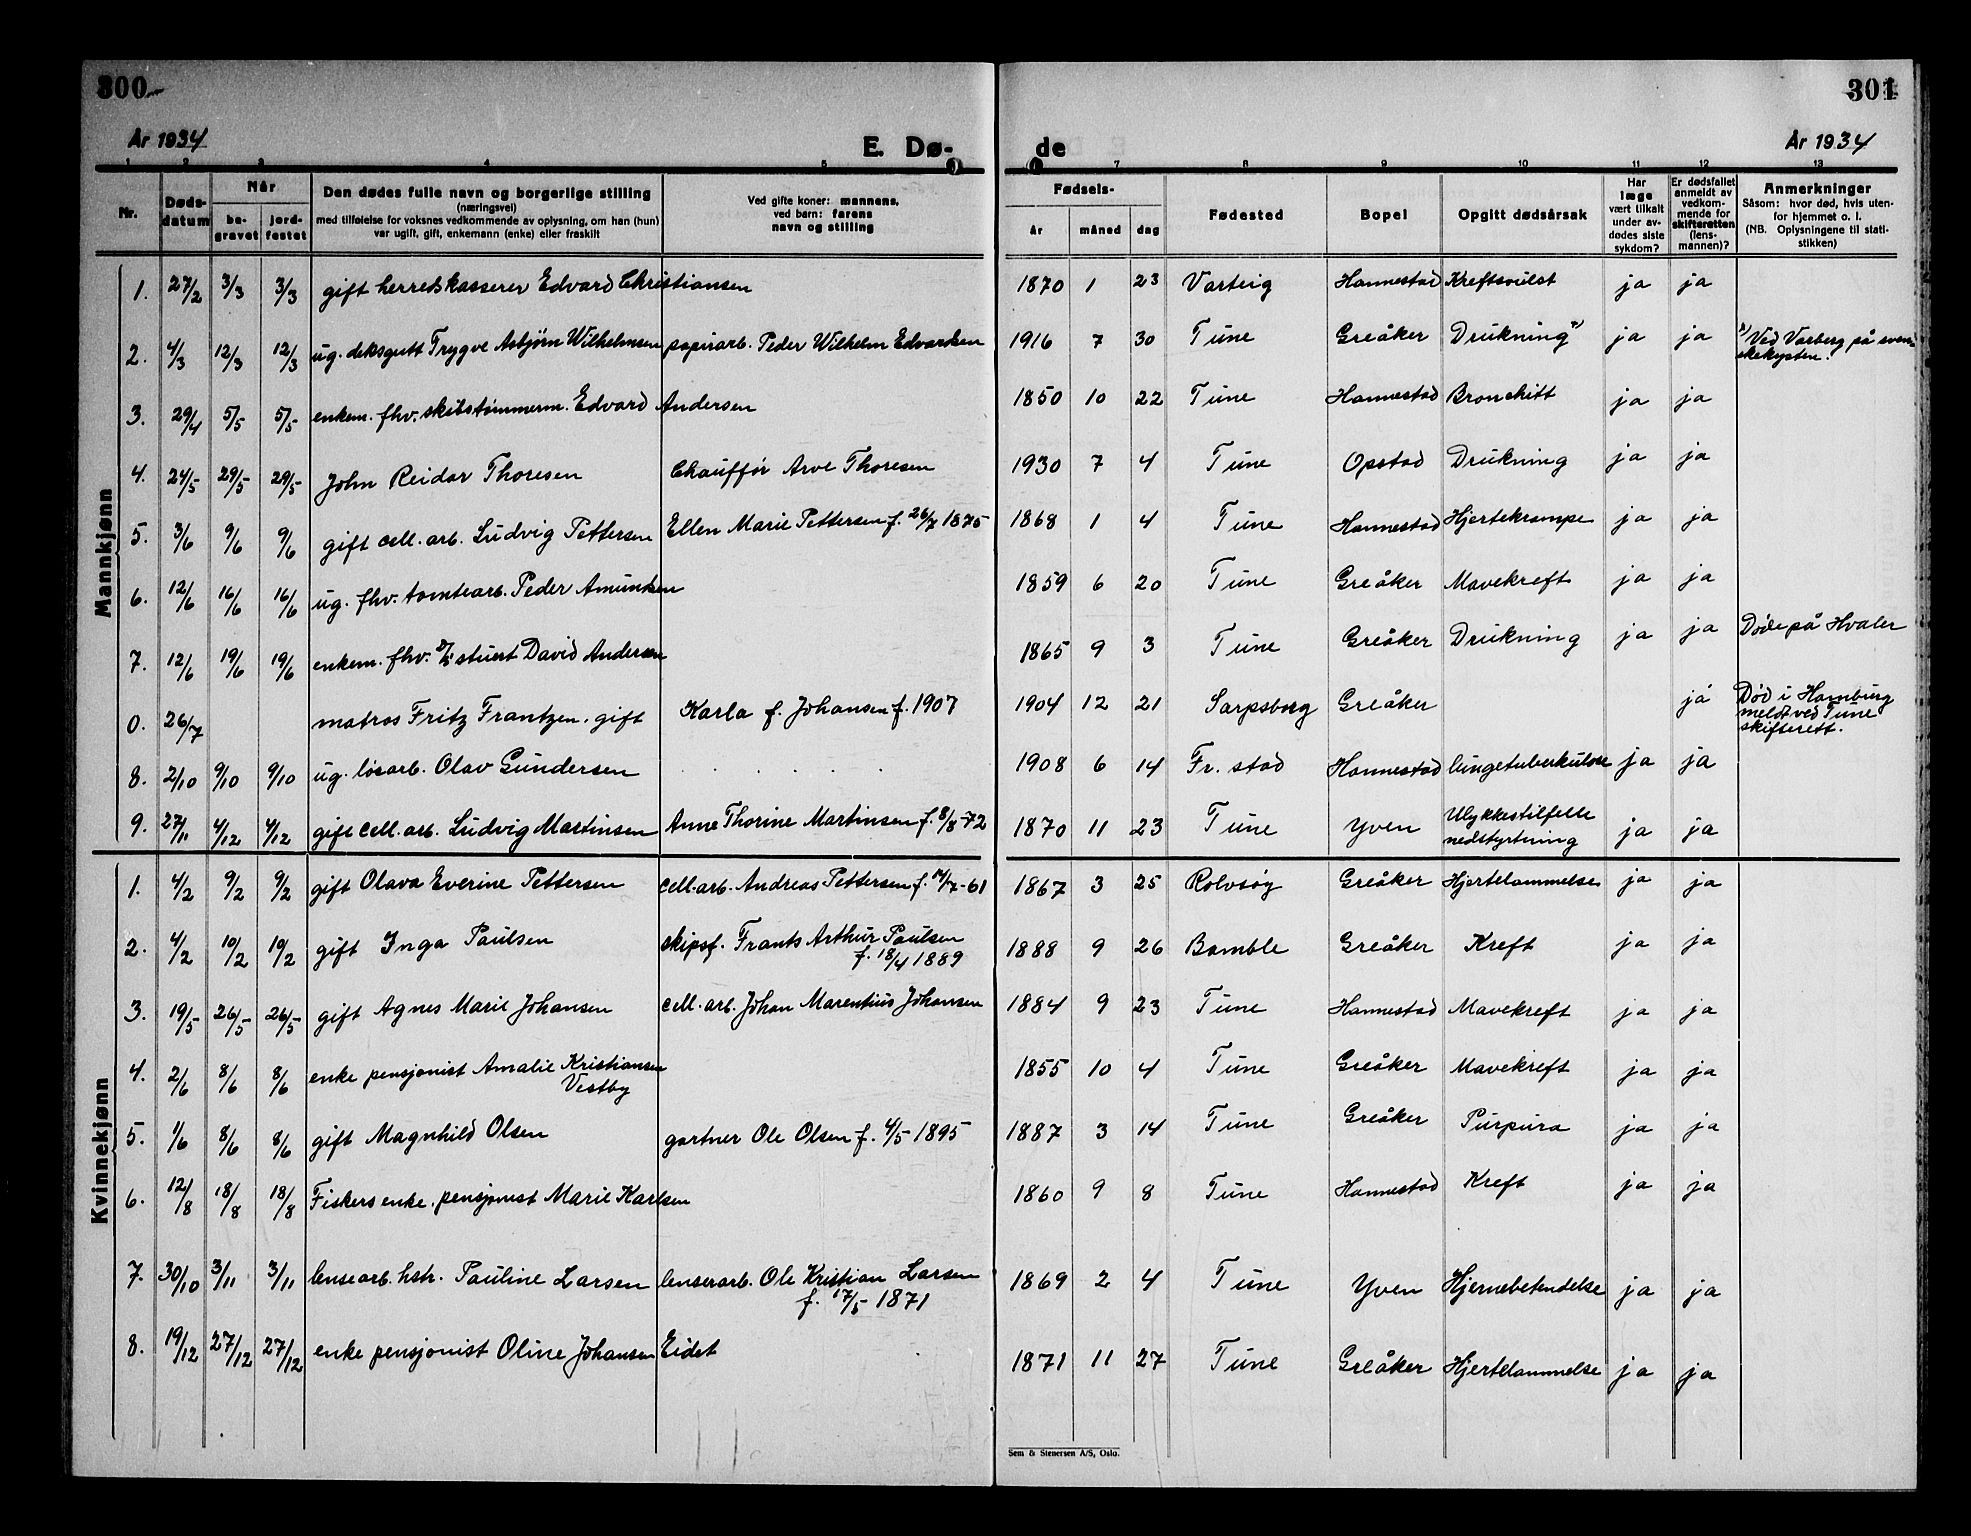 300
301
År 1934
E. Dø-
de
År 1934
1 2 3 4 5 7 8 9 10 11 12 13
Nr.
Døds-
datum
Når
be-
gravet
jord-
festet
Den dødes fulle navn og borgerlige stilling
(næringsvei)
med tilføielse for voksnes vedkommende av oplysning, om han (hun)
var ugift, gift, enkemann (enke) eller fraskilt
Ved gifte koner: mannens,
ved barn: farens
navn og stilling
Fødsels-
år måned dag
Fødested
Bopel
Opgitt dødsårsak
Har
læge
vært tilkalt
under av-
dødes siste
sykdom?
Er dødsfallet
anmeldt av
vedkom-
mende for
skifteretten
(lens-
mannen)?
Anmerkninger
Såsom: hvor død, hvis uten-
for hjemmet o. l.
(NB. Oplysningene til stati-
stikken)
Mannkjønn
1. 27/2 3/3 3/3 gift herredskasserer Edvard Christiansen 1870 1 23 Varteig Hannestad Kreftsvulst ja ja
2. 4/3 12/3 12/3 ug. deksgutt Trygve Asbjørn Wilhelmsen papirarb. Peder Wilhelm Edvardsen 1916 7 30 Tune Greåker Drukning ja ja Ved Varberg på sven-
skekysten.
3. 29/4 5/5 5/5 enkem. fhv. skibstømmerm. Edvard Andersen 1850 10 22 Tune Hannestad Bronchitt ja ja
4. 24/5 29/5 29/5 John Reidar Thoresen Chauffør Arve Thoresen 1930 7 4 Tune Opstad Drukning ja ja
5. 3/6 9/6 9/6 gift cell. arb. Ludvig Pettersen Ellen Marie Pettersen f. 26/7 1875 1868 1 4 Tune Hannestad Hjertekrampe ja ja
6. 12/6 16/6 16/6 ug. fhv. tomtearb. Peder Amundsen 1859 6 20 Tune Greåker Mavekreft ja ja
7. 12/6 19/6 19/6 enkem. fhv. stuert David Andersen 1865 9 3 Tune Greåker Drukning ja ja Døde på Hvaler
0. 26/7 matros Fritz Frantzen, gift Karla f. Johansen f. 1907 1904 12 21 Sarpsborg Greåker ja Død i Hamburg
meldt ved Tune
skifterett.
8. 2/10 9/10 9/10 ug. løsarb. Olav Gundersen 1908 6 14 Fr. stad Hannestad lungetuberkulose ja ja
9. 27/11 4/12 4/12 gift cell. arb. Ludvig Martinsen Anne Thorine Martinsen f. 8/8-72 1870 11 23 Tune Yven Ulykkestilfelle
nedstyrtning ja ja
Kvinnekjønn
1. 4/2 9/2 9/2 gift Olava Everine Pettersen cell. arb. Andreas Pettersen f. 14/7-61 1867 3 25 Rolvsøy Greåker Hjertelammelse ja ja
2. 4/2 10/2 10/2 gift Inga Paulsen skipsf. Frants Arthur Paulsen
f. 18/4 1889 1888 9 26 Bamble Greåker Kreft ja ja
3. 19/5 26/5 26/5 gift Agnes Marie Johansen cell. arb. Johan Marentius Johansen 1884 9 23 Tune Hannestad Mavekreft ja ja
4. 2/6 8/6 8/6 enke pensjonist Amalie Kristiansen
Vestby 1855 10 4 Tune Greåker Mavekreft ja ja
5. 1/6 8/6 8/6 gift Magnhild Olsen gartner Ole Olsen f. 4/5 1895 1887 3 14 Tune Greåker Purpura ja ja
6. 12/8 18/8 18/8 Fiskers enke. pensjonist Marie Karlsen 1860 9 8 Tune Hannestad Kreft ja ja
7. 30/10 3/11 3/11 lensearb. hstr. Pauline Larsen lensearb. Ole Kristian Larsen
f. 17/5 1871 1869 2 4 Tune Yven Hjernebetendelse ja ja
8. 19/12 27/12 27/12 enke pensjonist Oline Johansen Eidet 1871 11 27 Tune Greåker Hjertelammelse ja ja
Sem & Stenersen A/S, Oslo.